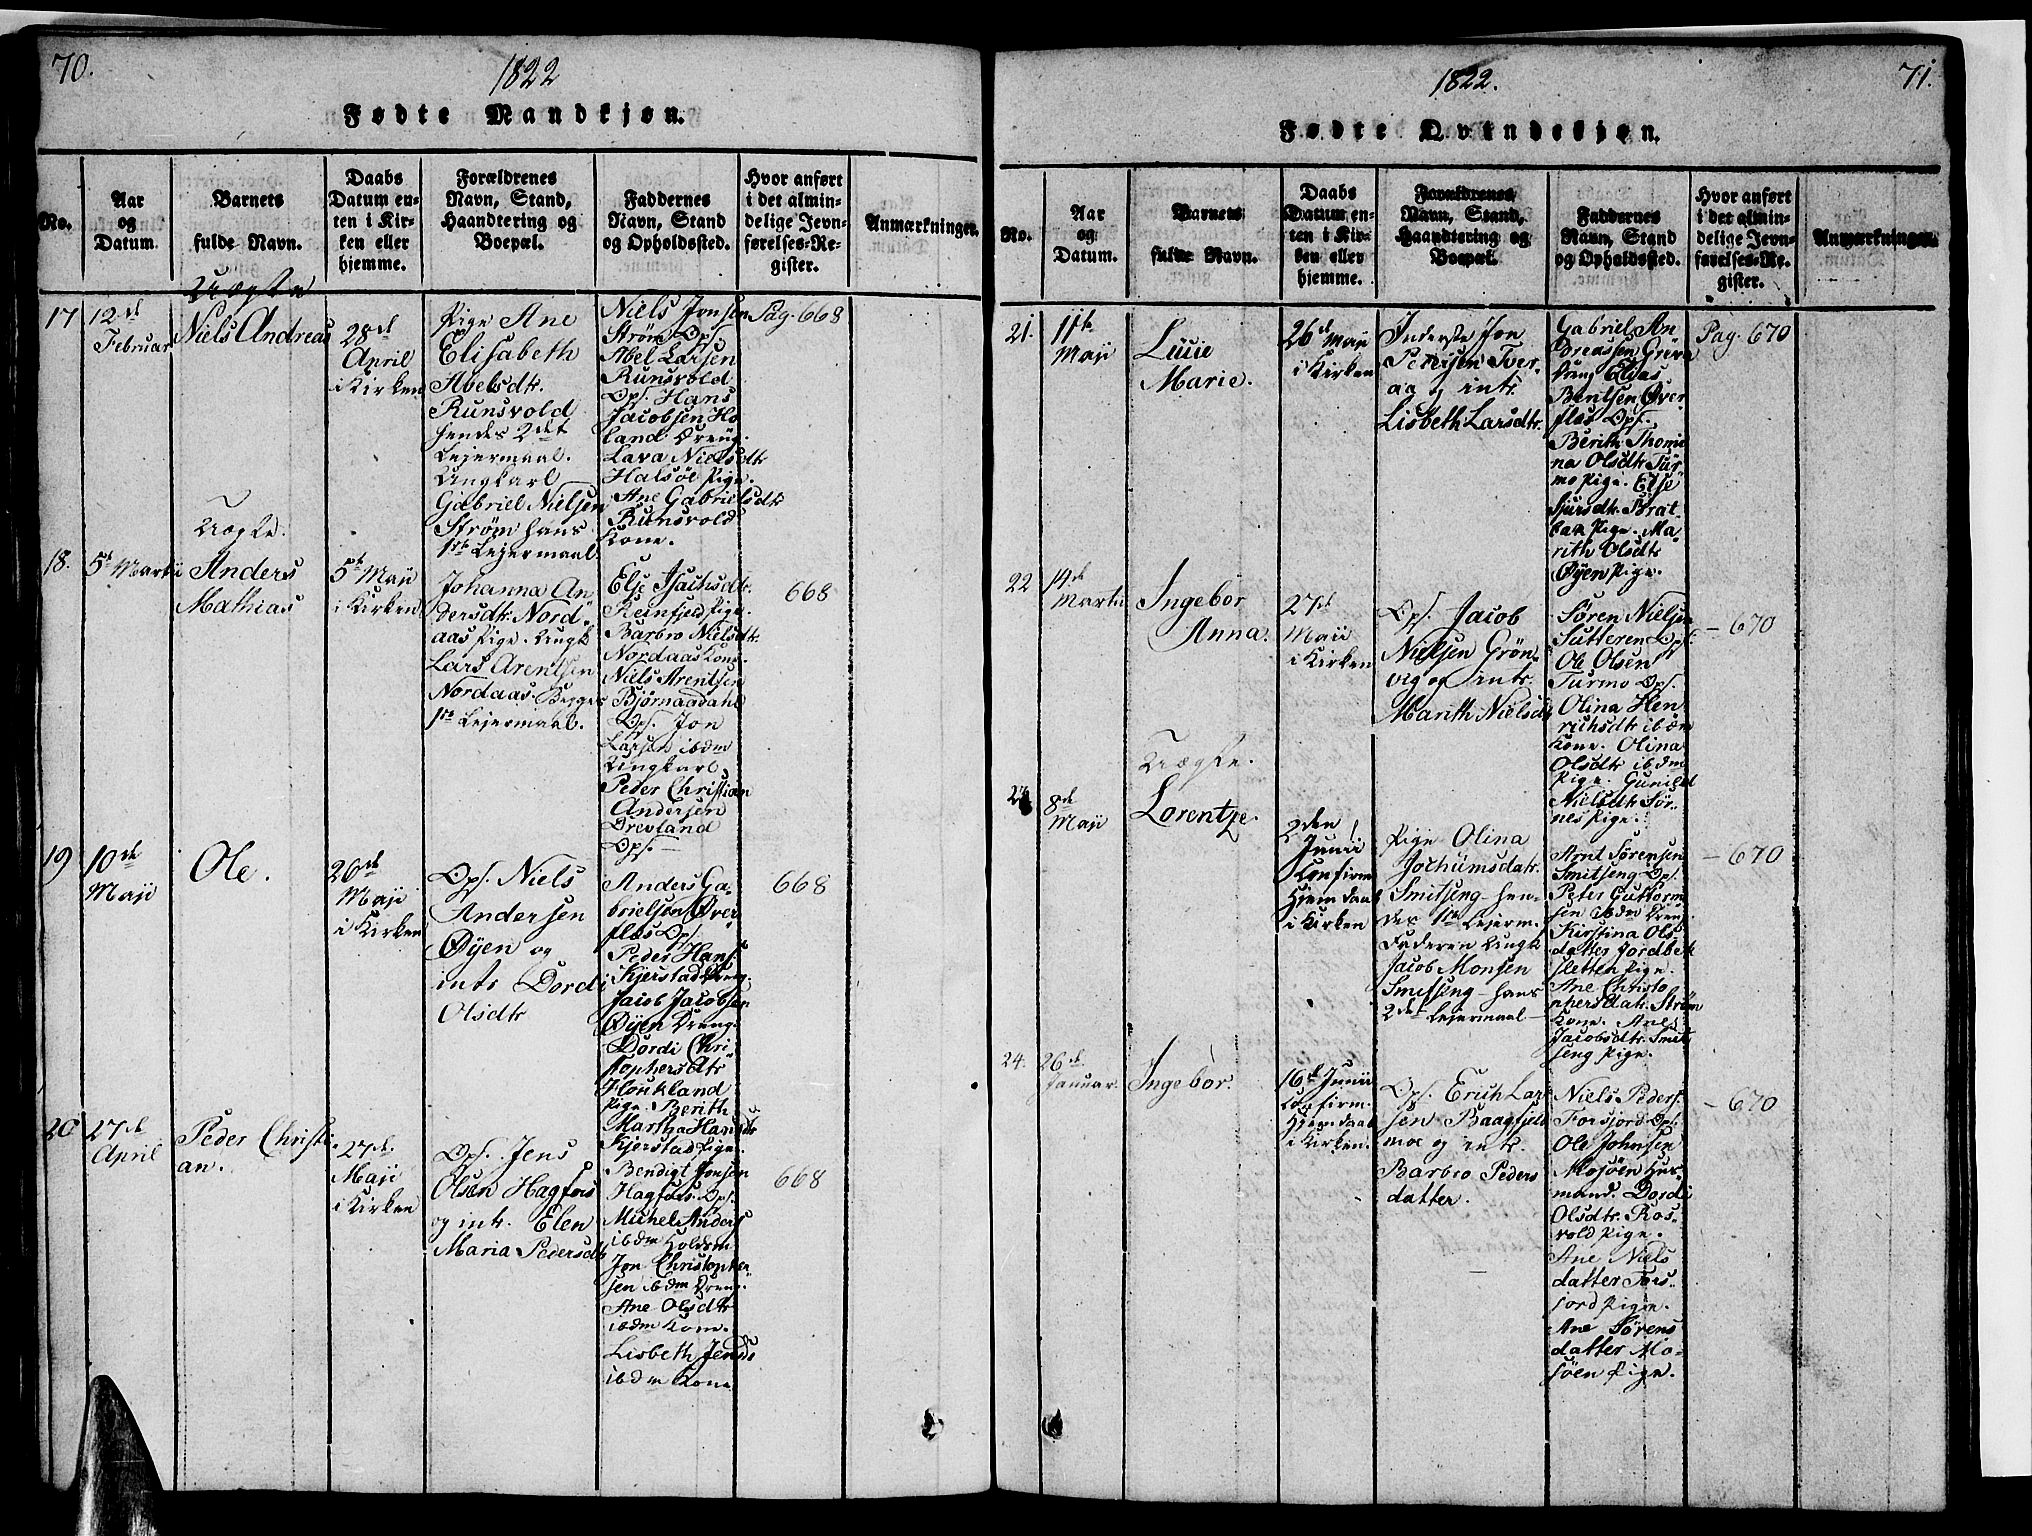 70.
1822
Fødte Mandkjøn.
No.
Aar
og
Datum.
Barnets
fulde Navn.
Daabs
Datum en-
ten i Kir-
ken eller
hjemme.
Forældrenes
Navn, Stand,
Haandtering og
Boepæl.
Faddernes
Navn, Stand
og Opholdssted.
Hvor anført
i det almin-
delige Jevn-
førelses-Re-
gister.
Anmærkninger.
17
12te
Februar
Uægte
Niels Andreas
28de
April
i Kirken
Pige Ane
Elisabeth
Abelsdtr.
Runsvold
hendes 2det
Leiermaal.
Ungkarl
Gabriel Nielsen
Strøm hans
1ste Lejermaal.
Niels Jonsen
Strøm Ops.
Abel Larsen
Runsvold
Ops. Hans
Jacobsen Ho
land Dreng.
Lava Nielsdtr
Halsøe Pige.
Ane Gabrielsdtr
Runsvold
Kone.
Pag. 668
18.
5te Martii
Uægte.
Anders
Mathias
5te Maji
i Kirken
Johanna An
dersdtr. Nord
aas Pige. Ungk
Lars Arentsen
Nordaas. Begges
1ste Lejermaal.
Else Isachsdtr.
Reinfjeld Pige.
Barbro Nielsdtr.
Nordaas Kone.
Niels Arentsen
Bjørnaadahl
Ops. Jon
Larsen ibdm
Ungkarl,
Peder Christian
Andersen
Drevland
Ops.
668
19
10de
Maji
Ole.
26de
Maji
i Kirken
Ops. Niels
Andersen
Øyen og
intr Dordi
Olsdtr
Anders Ga
brielsen Øver
flæs Ops.
Peder Hans.
Kjerstad Dreng
Jacob Jacobsen
Øyen Dreng.
Dordi Chri
stophersdtr
Houkland
Pige. Berith
Martha Hansdtr
Kjerstad Pige.
668
20
27de
April
Peder Christi
an.
27de
Maji
i Kirken
Ops. Jens
Olsen Hagfors
og intr. Elen
Maria Pedersdtr
Bendigt Jonsen
Hagfors. Ops.
Michel Anders
ibdm
Jon Christophe
sen ibdm Dreng.
Ane Olsdtr
ibdm Kone.
Lisbeth Jensdtr
ibdm Kone
668
71.
1822.
Fødte Qvindekjøn.
No.
Aar
og
Datum.
Barnets
fulde Navn.
Daabs
Datum en-
ten i Kir-
ken eller
hjemme.
Forældrenes
Navn, Stand,
Haandtering og
Boepæl.
Faddernes
Navn, Stand
og Opholdssted.
Hvor anført
i det almin-
delige Jevn-
førelses-Re-
gister.
Anmærkninger.
21.
11te
Maji
Lusie
Marie.
26de Maji
i Kirken
Inderste Jon
Petersen Tver
aa og intr.
Lisbeth Larsdtr.
Gabriel An
dreassen
Dreng Elias
Bentsen Øver
flæs Ops.
Berith Thomi
na Olsdtr Tur
mo Pige. Else
Sjursdtr Brat
bak Pige. Ma
rith Olsdtr
Øyen Pige.
Pag. 670
22
14de
Martii
Ingebor
Anna.
27de
Maji
i Kirken
Ops. Jacob
Nielsen Grøn
vig og intr.
Marith Nielsdtr
Søren Nielsen
Sutteren Ops.
Ole Olsen
Turmo Ops.
Olina Hen
richsdtr ibdm
Kone. Olina
Olsdtr ibdm
Pige. Gunild
Nielsdtr Sør
nes Pige.
- 670
23
8de
Maji
Uægte.
Lorentze.
2den
Junii
Confirm
Hjem daab
i Kirken
Pige Olina
Jochumsdatr.
Smitseng hen-
des 1ste Lejerm.
Faderen Ungk
Jacob Monsen
Smitseng - hans
2det Lejermaal -
Arnt Sørensen
Smitseng Ops.
Peter Guttorm
sen ibdm Dreng
Kirstina Ols
datter Jordbek
sletten Pige.
Ane Christo
phersdatr. Strøm
Kone. Ane
Jacobsdtr. Smit
seng Pige.
- 670
24.
26de
Januar.
Ingebor.
16de Junii
Confirm.
Hjem daab
i Kirken.
Ops. Erich Lar
sen Baagfjeld
moe og intr.
Barbro Peders
datter.
Niels Peders.
Forsjord Ops.
Ole Johnsen
Mosøen Huus
mand. Dordi
Olsdtr. Ros
vold Pige.
Ane Niels
datter Fors
jord Pige.
Ane Sørens
datter Mo-
søen Pige.
- 670